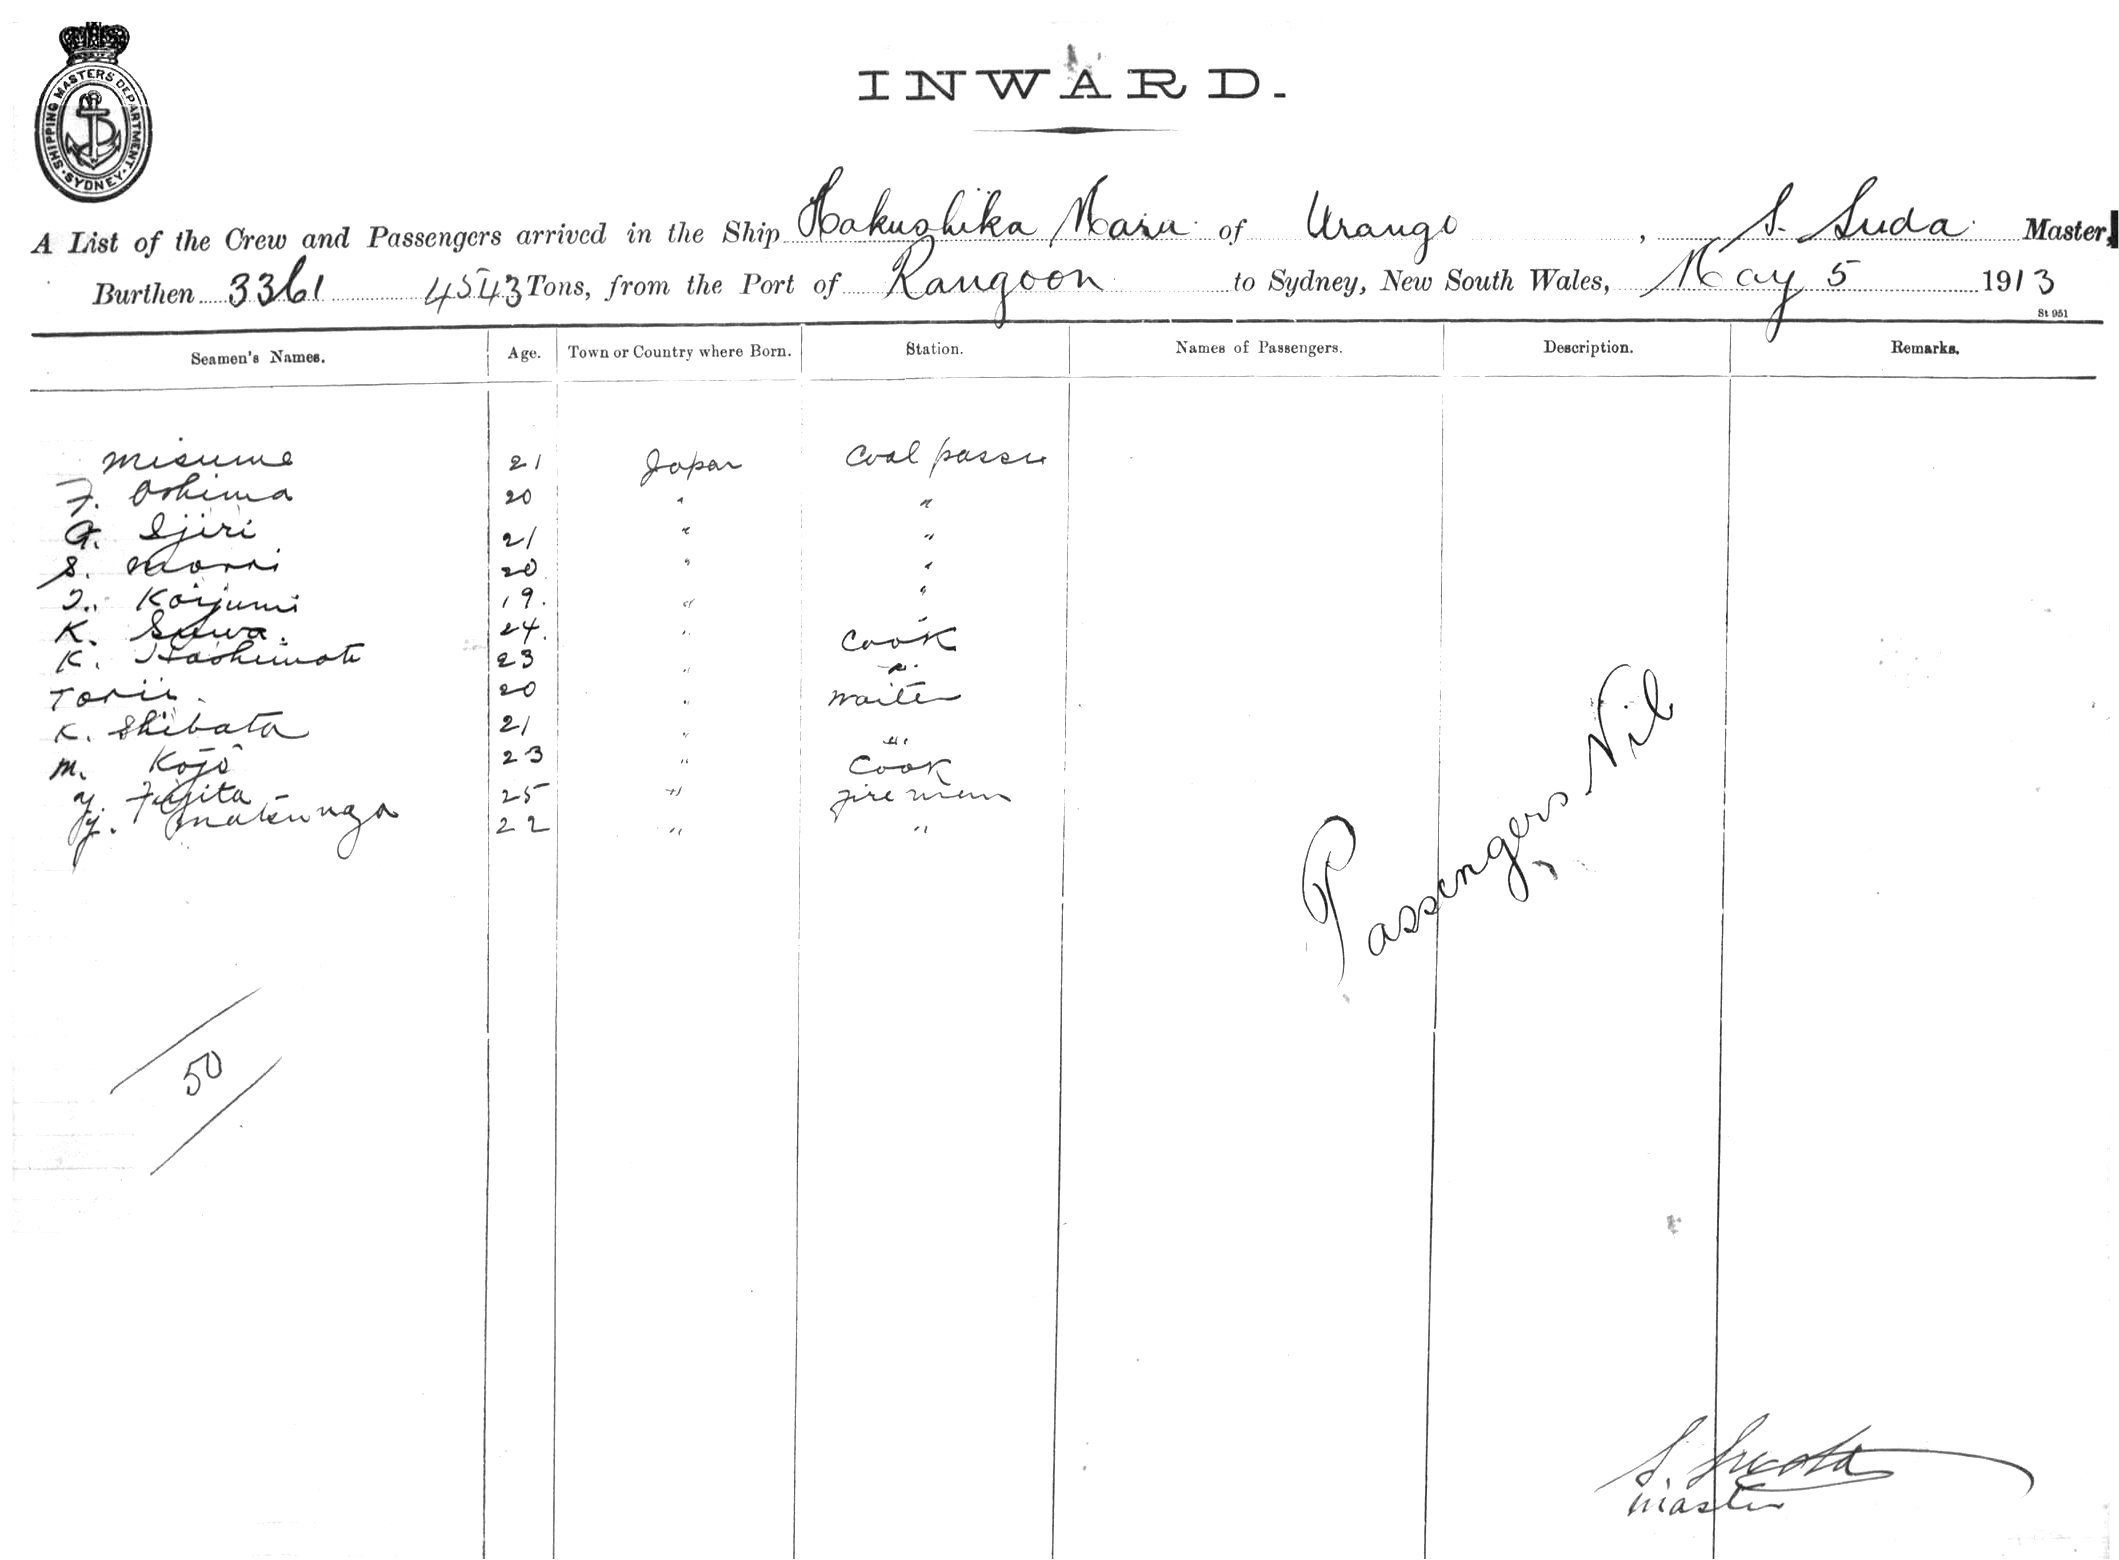 SHIPPING MASTERS DEPARTMENT. SYDNEY.
INWARD.
A List of the Crew and Passengers arrived in the Ship Hakushika Maru of Urango, S. Suda Master,
Burthen 3361 4543 Tons, from the Port of Rangoon to Sydney, New South Wales, May 5 1913
St 951
Seamen's Names. Age. Town or Country where Born. Station. Names of Passengers. Description. Remarks.
Misumo 21 Japan Coal passer
F. Oshima 20 " "
G. Ijiri 21 " "
S. Morri 20 " "
T. Koijumi 19. " "
K. Suwa. 24. " Cook
K. Hashimoto 23 " "
Torii. 20 " Waiter
K. Shibata 21 " "
M. Kojô 23 " Cook
Y. Fujita 25 " Fire man
Y. Matsunga 22 " "
Passengers Nil
50
S. Suda
Master